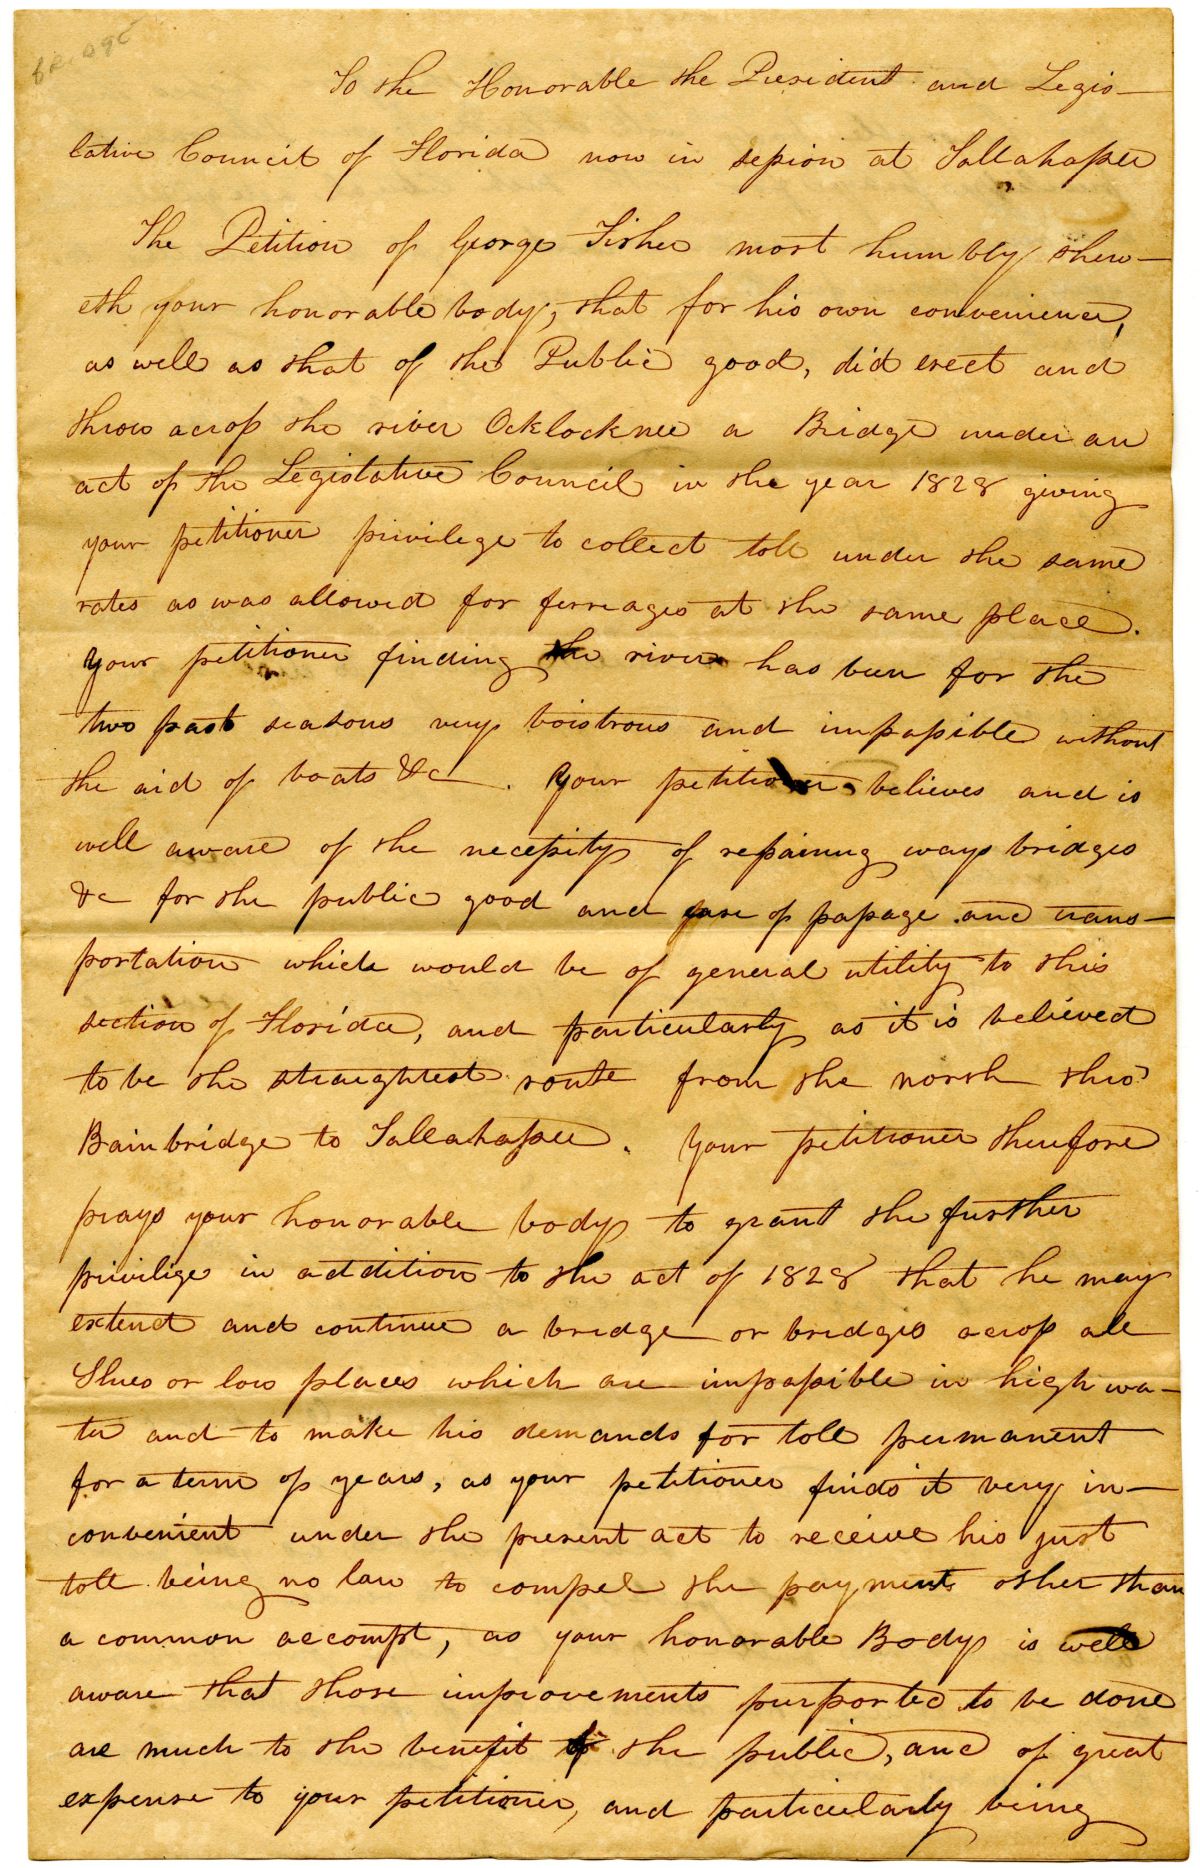 bridge
To the Honorable the President and Legis–
lative Council of Florida now in session at Tallahassee
The Petition of George Fisher most humbly shew–
eth your honorable body, that for his own convenience,
as well as that of the Public good, did erect and
throw across the river Ocklocknee a Bridge under an
act of the Legislative Council in the year 1828 giving
your petitioner privilege to collect toll under the same
rates as was allowed for ferriages at the same place.
Your petitioner finding the river has been for the
two past seasons very boistrous and impassible without
the aid of boats &c. Your petitioner believes and is
well aware of the necessity of repairing ways bridges
&c for the public good and ease of passage and trans–
portation which would be of general utility to this
section of Florida, and particularly as it is believed
to be the straightest route from the north thro
Bainbridge to Tallahassee. Your petitioner therefore
prays your honorable body to grant the further
privilige in addition to the act of 1828 that he may
extend and continue a bridge or bridges across all
Slues or low places which are impassible in high wa–
ter and to make his demands for toll permanent
for a term of years, as your petitioner finds it very in–
convenient under the present act to receive his just
toll being no law to compel the payment other than
a common accompt, as your honorable Body is well
aware that those improvements purported to be done
are much to the benefit of the public, and of great
expense to your petitioner, and particularly being